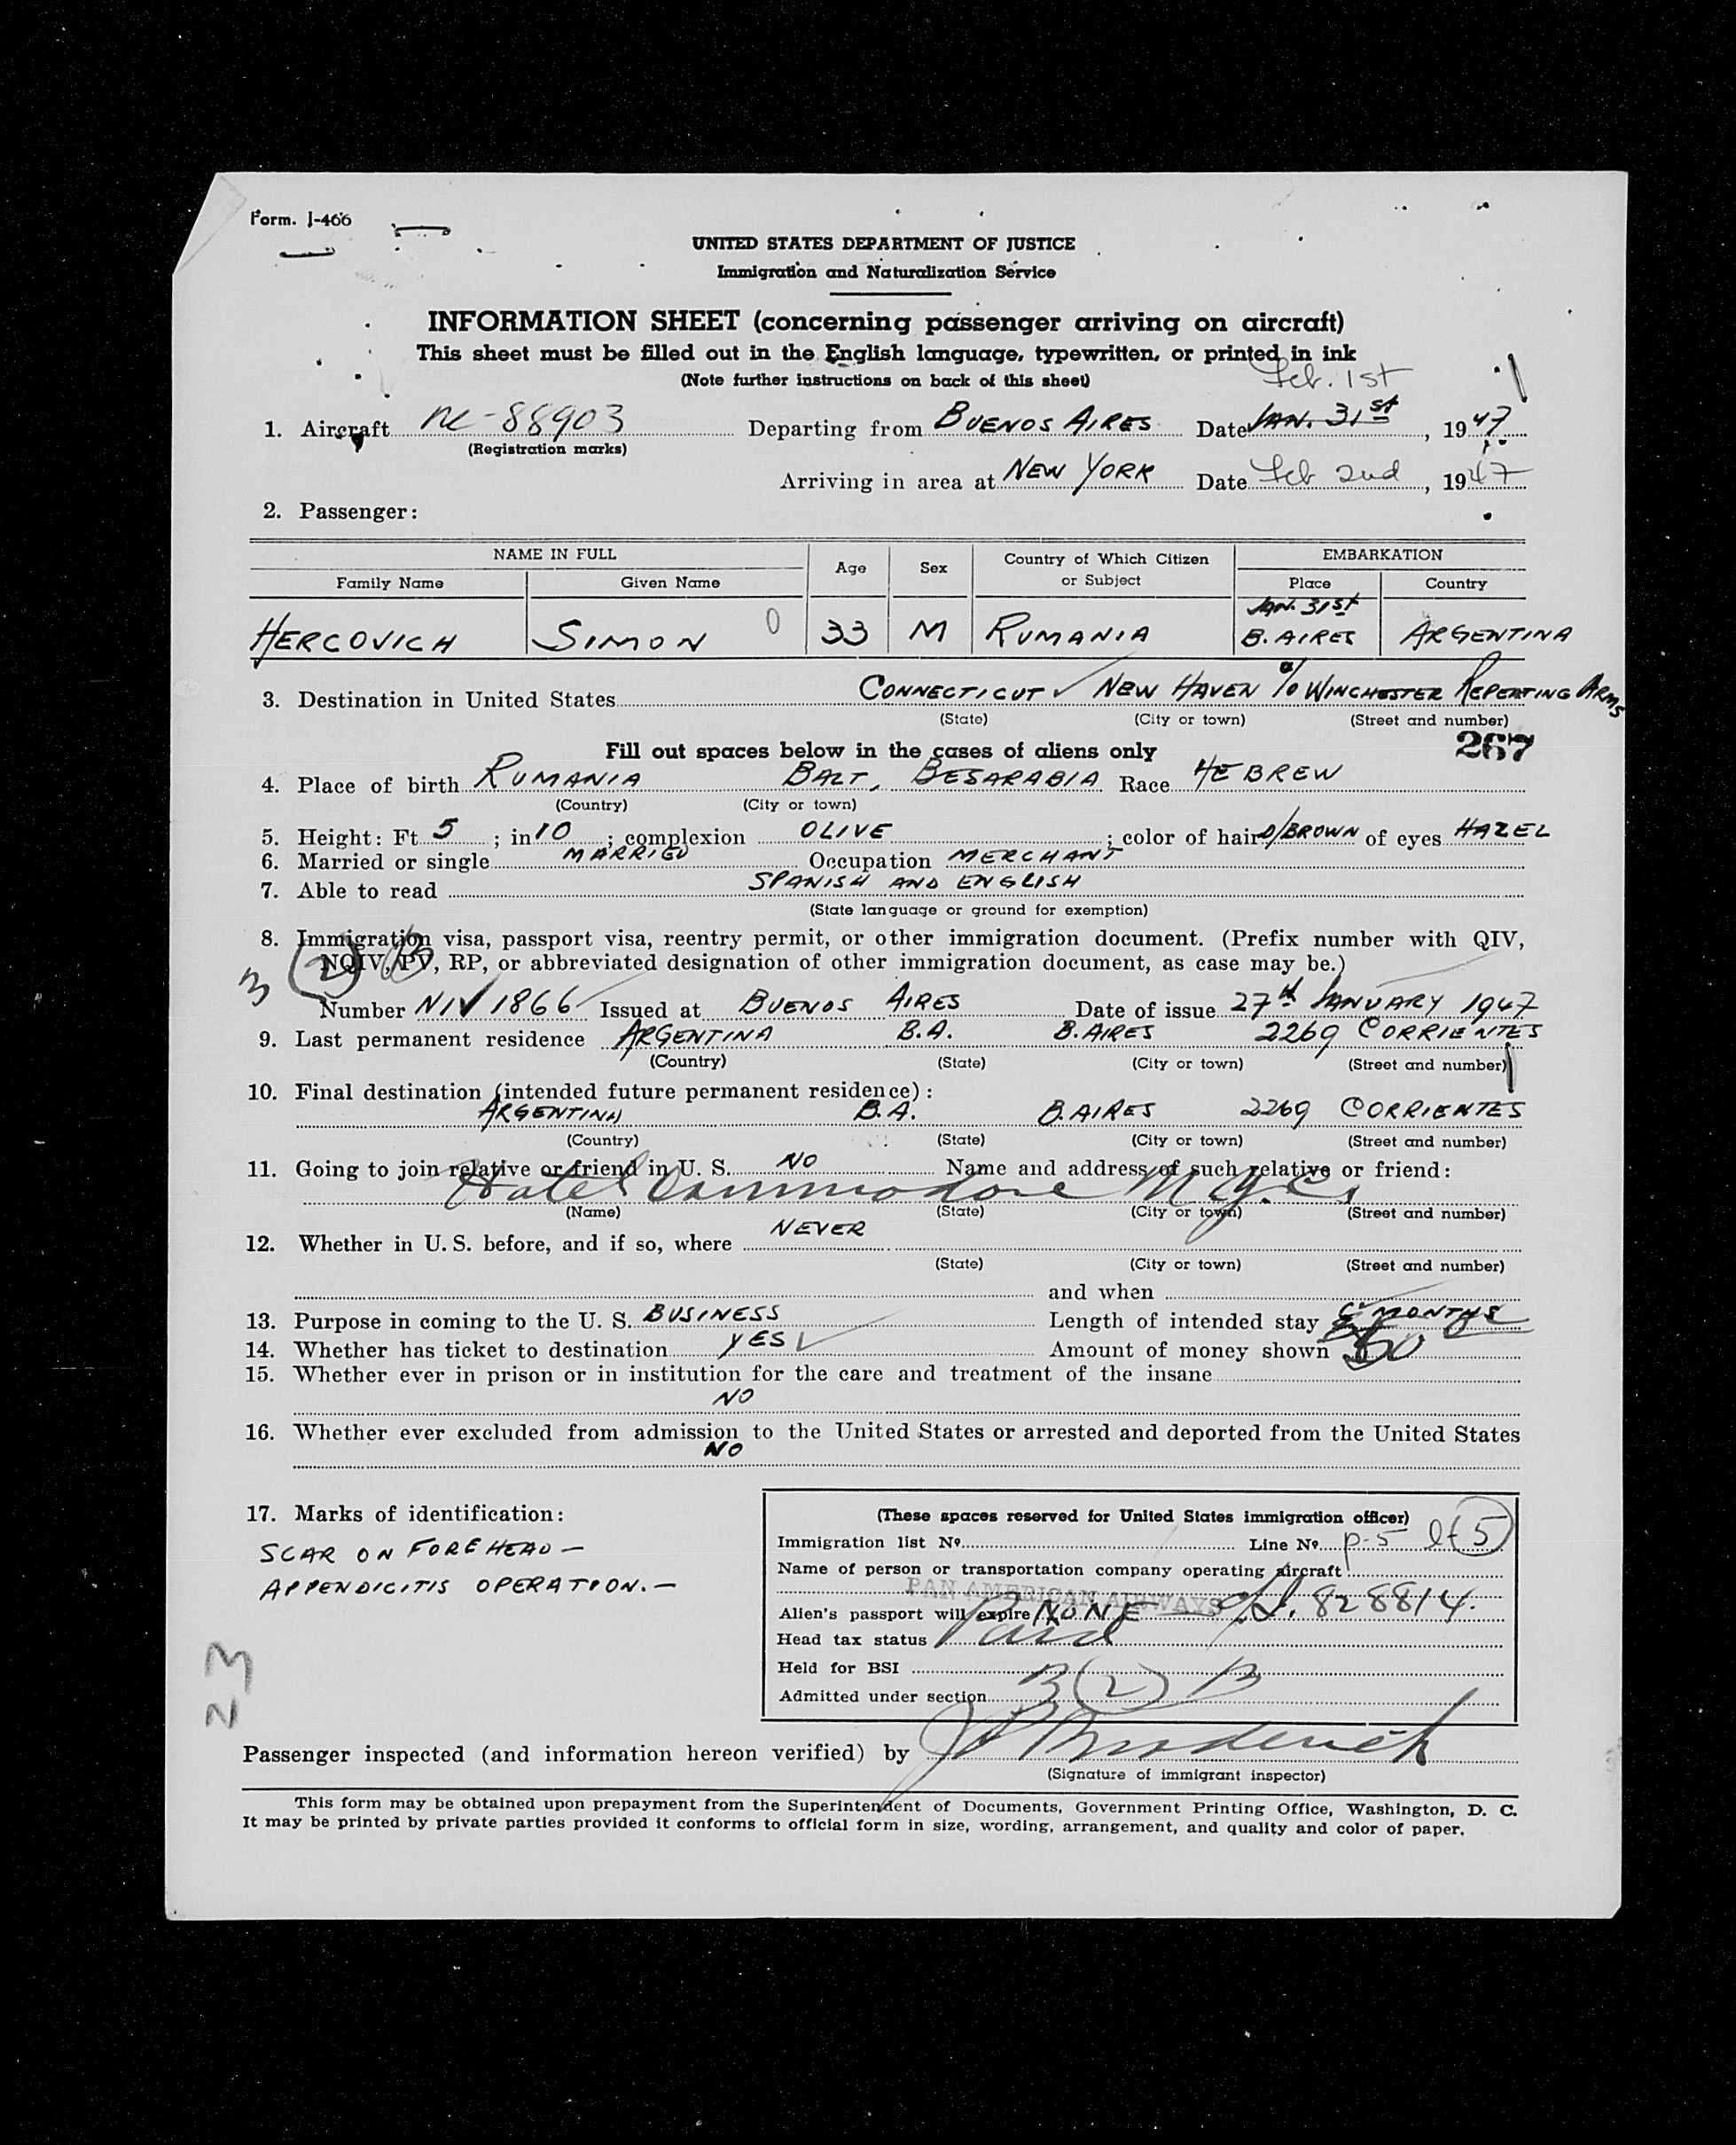 Form. I-466
UNITED STATES DEPARTMENT OF JUSTICE
Immigration and Naturalization Service
INFORMATION SHEET (concerning passenger arriving on aircraft)
This sheet must be filled out in the English language, typewritten, or printed in ink
(Note further instructions on back of this sheet)
Feb. 1st
1. Aircraft NC-88903 Departing from BUENOS AIRES Date JAN. 31st, 1947
(Registration marks)
Arriving in area at NEW YORK Date Feb 2nd, 1947
2. Passenger:
NAME IN FULL Age Sex Country of Which Citizen or Subject EMBARKATION
Family Name Given Name Place Country
JAN. 31st
HERCOVICH SIMON 0 33 M RUMANIA B. AIRES ARGENTINA
3. Destination in United States CONNECTICUT NEW HAVEN c/o WINCHESTER REPEATING ARMS
(State) (City or town) (Street and number)
Fill out spaces below in the cases of aliens only 267
4. Place of birth RUMANIA BALT, BESARABIA Race HEBREW
(Country) (City or town)
5. Height: Ft. 5; in 10; complexion OLIVE; color of hair D/BROWN of eyes HAZEL
6. Married or single MARRIED Occupation MERCHANT
7. Able to read SPANISH AND ENGLISH
(State language or ground for exemption)
8. Immigration visa, passport visa, reentry permit, or other immigration document. (Prefix number with QIV,
3 (2) B NQIV, PV, RP, or abbreviated designation of other immigration document, as case may be.)
Number NIV 1866 Issued at BUENOS AIRES Date of issue 27th JANUARY 1947
9. Last permanent residence ARGENTINA B.A. B.AIRES 2269 CORRIENTES
(Country) (State) (City or town) (Street and number)
10. Final destination (intended future permanent residence):
ARGENTINA B.A. B.AIRES 2269 CORRIENTES
(Country) (State) (City or town) (Street and number)
11. Going to join relative or friend in U. S. NO Name and address of such relative or friend:
Hotel Commodore N.Y.C.
(Name) (State) (City or town) (Street and number)
12. Whether in U. S. before, and if so, where NEVER
(State) (City or town) (Street and number)
and when
13. Purpose in coming to the U. S. BUSINESS Length of intended stay MONTHS
14. Whether has ticket to destination YES Amount of money shown
15. Whether ever in prison or in institution for the care and treatment of the insane
NO
16. Whether ever excluded from admission to the United States or arrested and deported from the United States
NO
17. Marks of identification:
SCAR ON FOREHEAD —
APPENDICITIS OPERATION. —
23
(These spaces reserved for United States immigration officer)
Immigration list No. Line No. p-5 l-5
Name of person or transportation company operating aircraft
PAN AMERICAN AIRWAYS
Alien's passport will expire NONE 828814.
Head tax status Paid
Held for BSI
Admitted under section 3 (2) B
Passenger inspected (and information hereon verified) by
(Signature of immigrant inspector)
This form may be obtained upon prepayment from the Superintendent of Documents, Government Printing Office, Washington, D. C.
It may be printed by private parties provided it conforms to official form in size, wording, arrangement, and quality and color of paper.